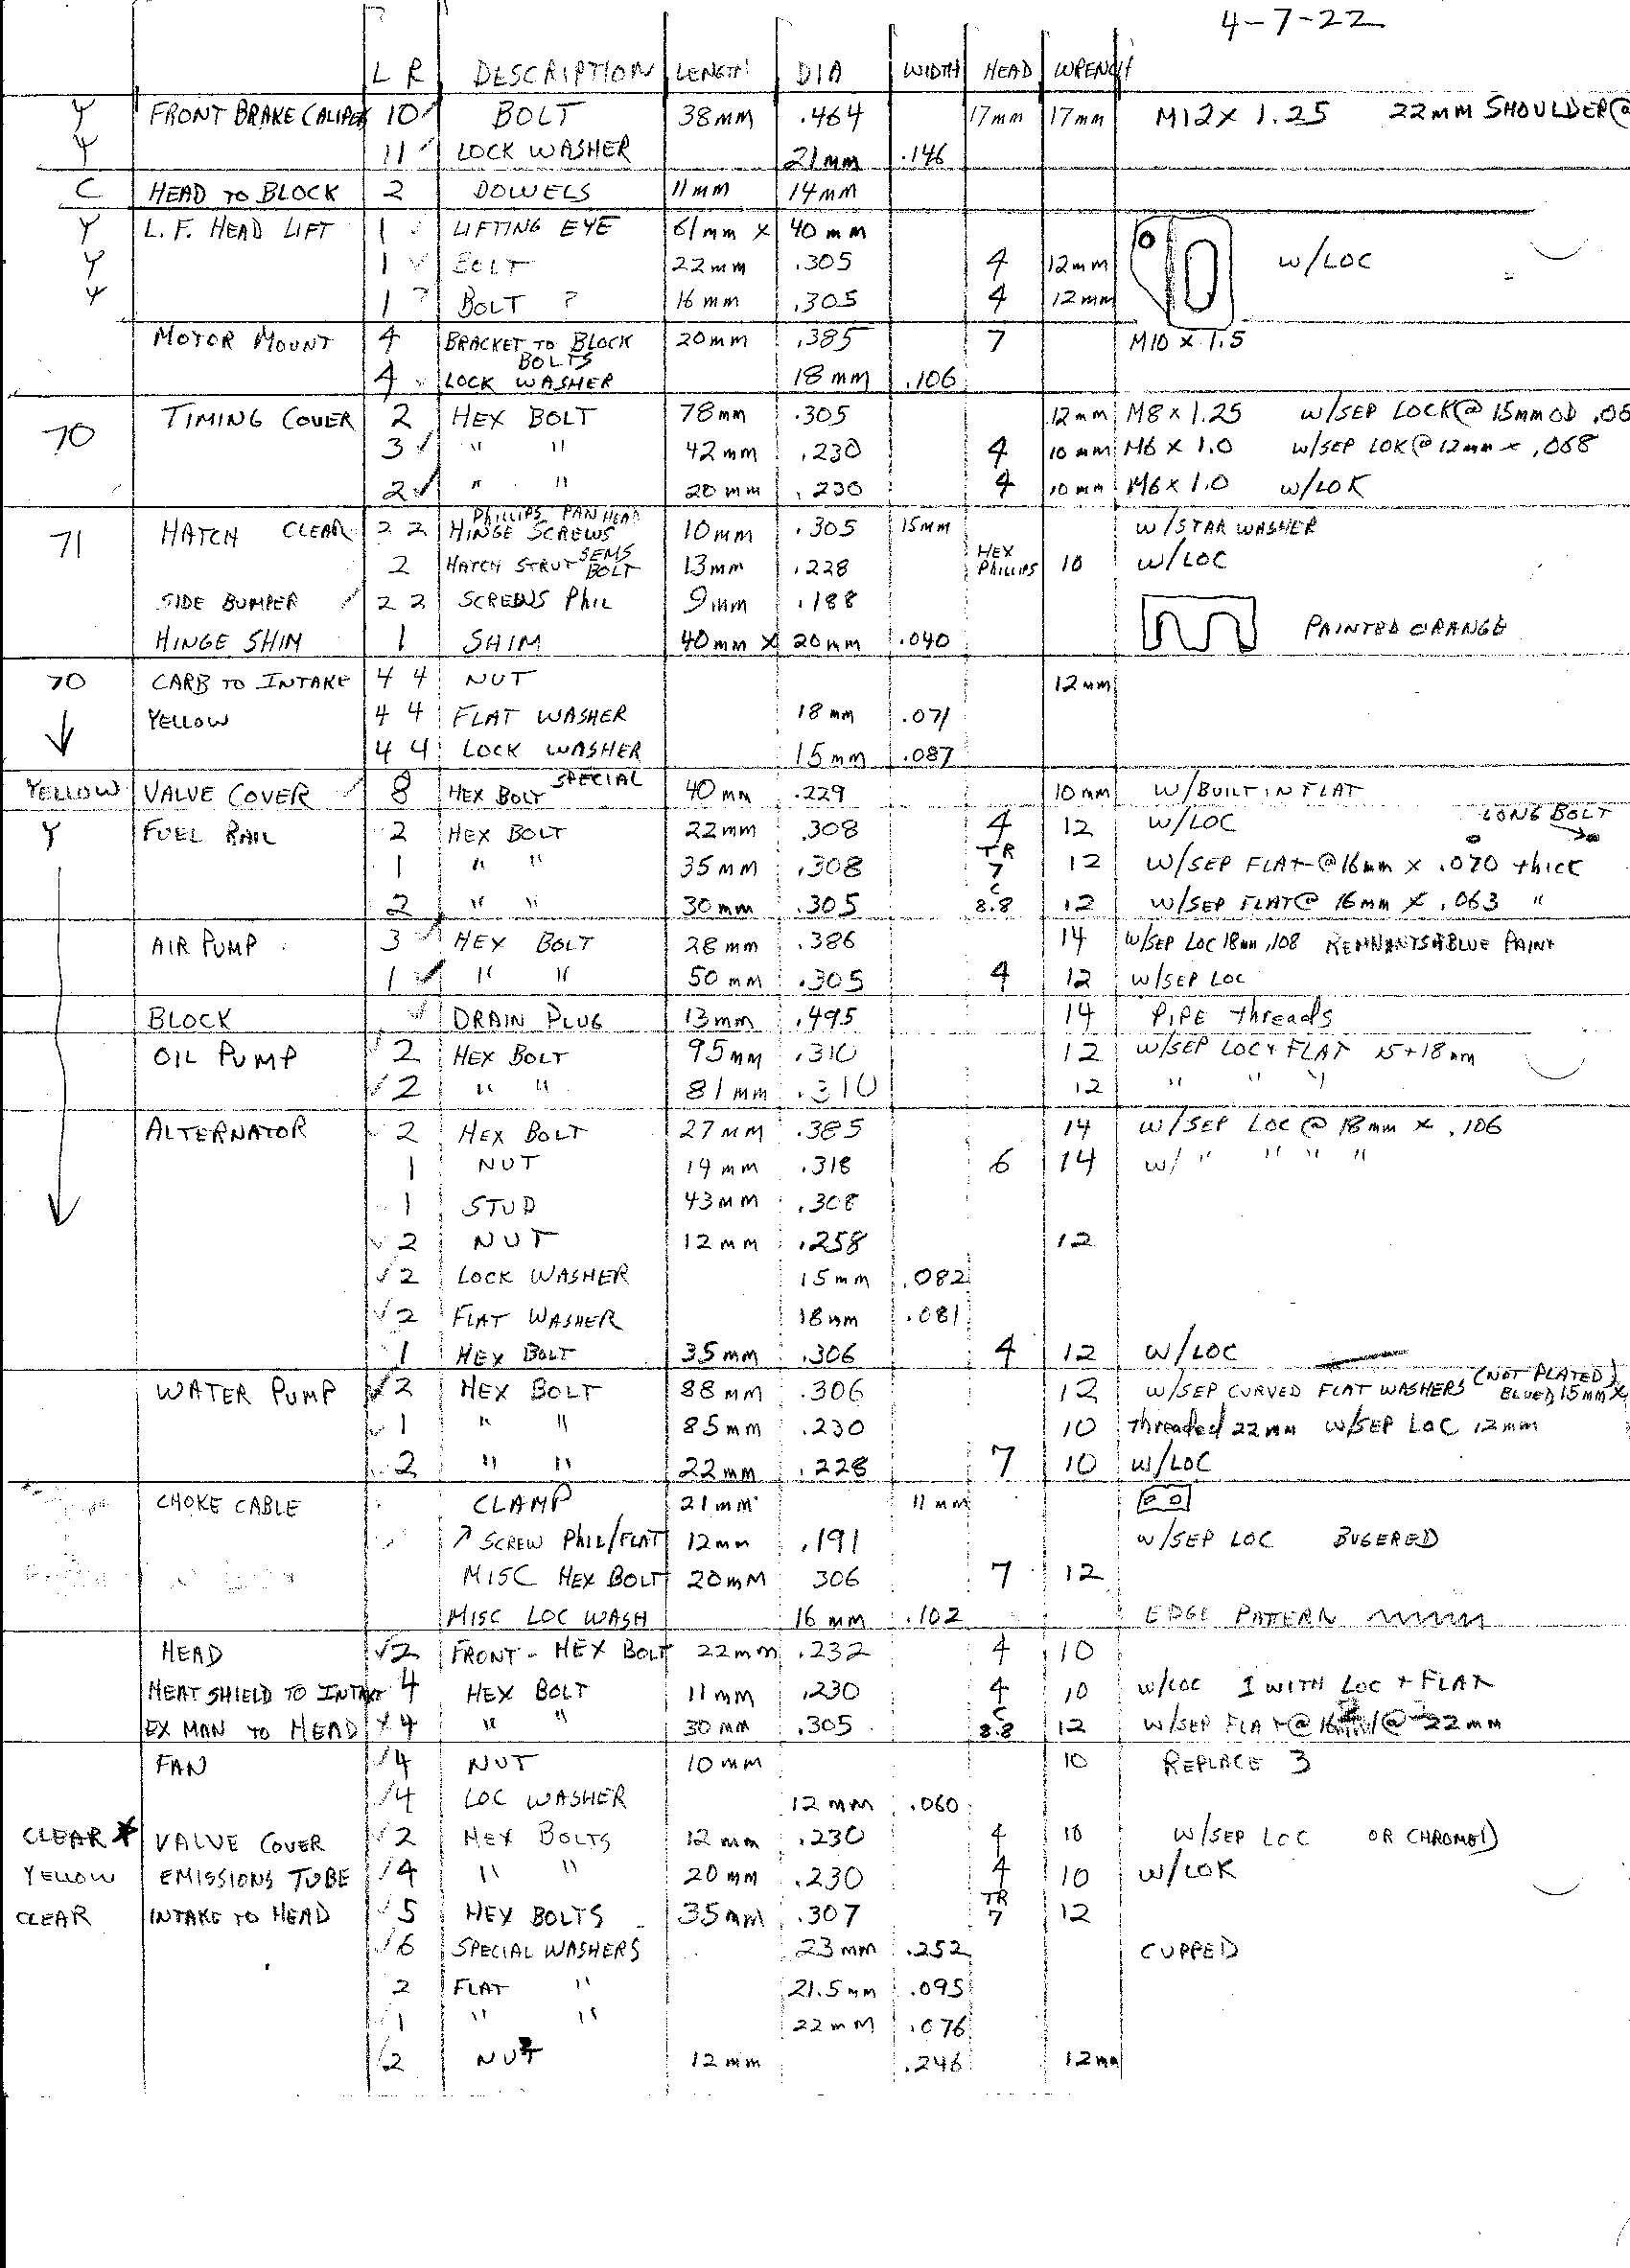 4-7-22
L R DESCRIPTION LENGTH DIA WIDTH HEAD WRENCH
Y FRONT BRAKE CALIPER 10 BOLT 38mm .464 17mm 17mm M12 x 1.25 22mm SHOULDER @
Y 11 LOCK WASHER 21mm .146
C HEAD TO BLOCK 2 DOWELS 11mm 14mm
Y L.F. HEAD LIFT 1 LIFTING EYE 61mm x 40mm
Y 1 BOLT 22mm .305 4 12mm W/LOC
Y 1 ? BOLT ? 16mm .305 4 12mm
MOTOR MOUNT 4 BRACKET TO BLOCK BOLTS 20mm .385 7 M10 x 1.5
4 LOCK WASHER 18mm .106
70 TIMING COVER 2 HEX BOLT 78mm .305 12mm M8 x 1.25 W/SEP LOCK @ 15mm OD
3 ✓ " " 42mm .230 4 10mm M6 x 1.0 W/SEP LOK @ 12mm x .068
2 ✓ " " 20mm .230 4 10mm M6 x 1.0 W/LOK
71 HATCH CLEAR 2 2 PHILLIPS PAN HEAD HINGE SCREWS 10mm .305 15mm W/STAR WASHER
2 HATCH STRUT SEMS BOLT 13mm .228 HEX PHILLIPS 10 W/LOC
SIDE BUMPER 2 2 SCREWS PHIL 9mm .188
HINGE SHIM 1 SHIM 40mm x 20mm .040 PAINTED ORANGE
70 CARB TO INTAKE 4 4 NUT 12mm
YELLOW 4 4 FLAT WASHER 18mm .071
4 4 LOCK WASHER 15mm .087
YELLOW VALVE COVER 8 HEX BOLT SPECIAL 40mm .229 10mm W/BUILT IN FLAT
Y FUEL RAIL 2 HEX BOLT 22mm .308 4 12 W/LOC LONG BOLT
1 " " 35mm .308 TR 7 12 W/SEP FLAT @ 16mm x .070 thick
2 " " 30mm .305 C 8.8 12 W/SEP FLAT @ 16mm x .063 "
AIR PUMP 3 HEX BOLT 28mm .386 14 W/SEP LOC 18mm .108 REMNANTS OF BLUE PAINT
1 ✓ " " 50mm .305 4 12 W/SEP LOC
BLOCK ✓ DRAIN PLUG 13mm .495 14 PIPE threads
OIL PUMP ✓2 HEX BOLT 95mm .310 12 W/SEP LOC + FLAT 15+18mm
✓2 " " 81mm .310 12 " " "
ALTERNATOR 2 HEX BOLT 27mm .385 14 W/SEP LOC @ 18mm x .106
1 NUT 19mm .318 6 14 W/ " " " "
1 STUD 43mm .308
✓2 NUT 12mm .258 12
✓2 LOCK WASHER 15mm .082
✓2 FLAT WASHER 18mm .081
1 HEX BOLT 35mm .306 4 12 W/LOC
WATER PUMP ✓2 HEX BOLT 88mm .306 12 W/SEP CURVED FLAT WASHERS (NOT PLATED) BLUED 15mm x
✓1 " " 85mm .230 10 threaded 22mm W/SEP LOC 12mm
2 " " 22mm .228 7 10 W/LOC
CHOKE CABLE CLAMP 21mm 11mm
↗ SCREW PHIL/FLAT 12mm .191 W/SEP LOC BUGERED
MISC HEX BOLT 20mm 306 7 12
MISC LOC WASH 16mm .102 EDGE PATTERN
HEAD ✓2 FRONT - HEX BOLT 22mm .232 4 10
HEAT SHIELD TO INTAKE 4 HEX BOLT 11mm .230 4 10 W/LOC 1 WITH LOC + FLAT
EX MAN TO HEAD x 4 " " 30mm .305 C 8.8 12 W/SEP FLAT @ @ 22mm
FAN ✓4 NUT 10mm 10 REPLACE 3
✓4 LOC WASHER 12mm .060
CLEAR * VALVE COVER ✓2 HEX BOLTS 12mm .230 4 10 W/SEP LOC OR CHROMED
YELLOW EMISSIONS TUBE ✓4 " " 20mm .230 4 10 W/LOK
CLEAR INTAKE TO HEAD ✓5 HEX BOLTS 35mm .307 TR 7 12
✓6 SPECIAL WASHERS 23mm .252 CUPPED
2 FLAT " 21.5mm .095
1 " " 22mm .076
✓2 NUT 12mm .246 12mm